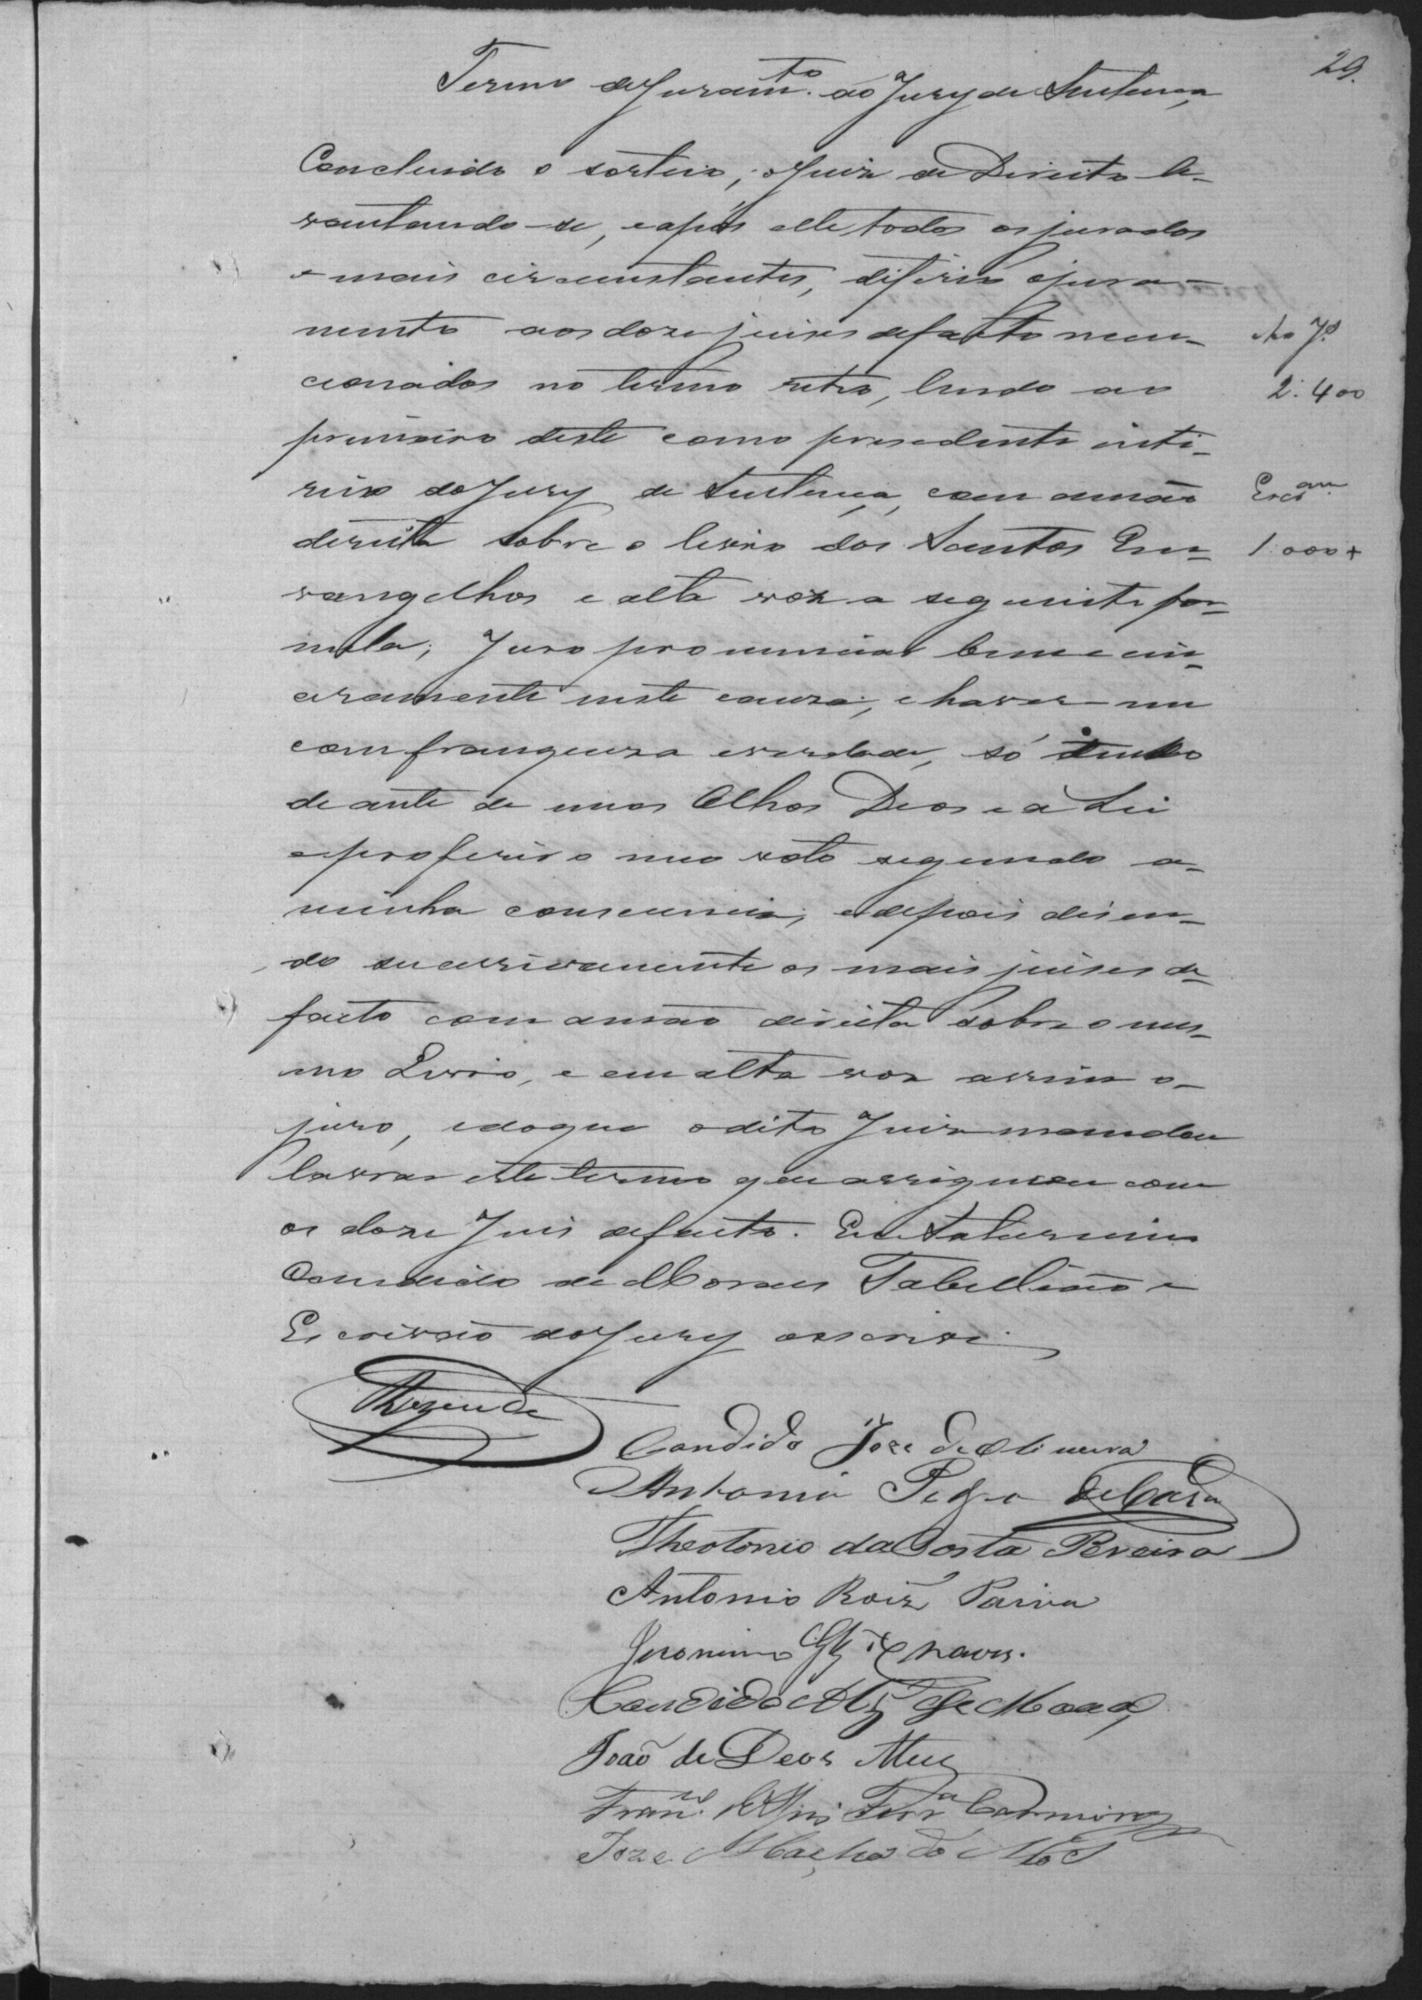 29.
Termo de Juram.to ao Jury de Sentença
Concluido o sorteio, o Juiz de Direito le-
vantando-se, e após elle todos os jurados
e mais circunstantes, diferio o jura-
mento aos doze juises de facto men-
cionados no termo retro, lendo ao
primeiro deste como presedente inte-
rino do Jury de Sentença, com a mão
dereita sobre o livro dos Santos Em-
vangelhos e alta voz a seguinte for-
mula; Juro pronunciar bem e cin-
ceramente neste causa, e haver-me
com franqueza e verdade, só tendo
deante de meos Olhos Deos e a Lei
e proferir o meo voto segundo a-
minha conciencia; e depois disen-
do sucessivamente os mais juises de-
facto com a mão direita sobre o mes-
mo Livro, e em alta voz assim o-
juro, e do que o dito Juiz mandou
lavrar este termo que assignou com
os doze Juis de facto. Eu Saturnino
Candido de Moraes Tabellião e
Escrivão do Jury o escrivi.
Ao Js.
2.400
Escram.
1.000+
Rezende
Candido Joze de Oliveira
Antonio Pedro de
Theotonio da Costa Pereira
Antonio Roiz Paiva
Jeronimo Chaves.
Candido de
João de Deos
Fran.co Ferr.a
Joze Machado